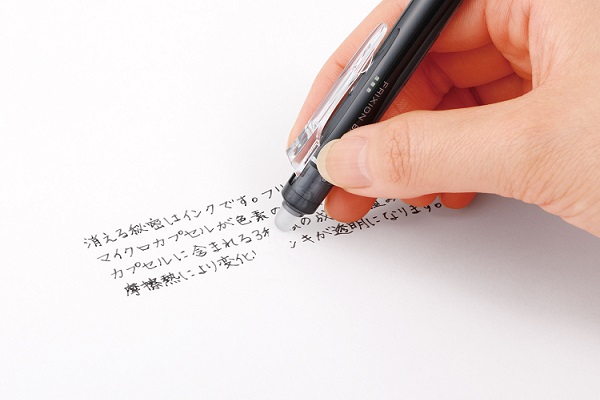 消える秘密はインクです。フリ
マイクロカプセルが色素の
カプセルに含まれる3種 の成
摩擦熱により変化 ンキが透明になります。
FRIXION